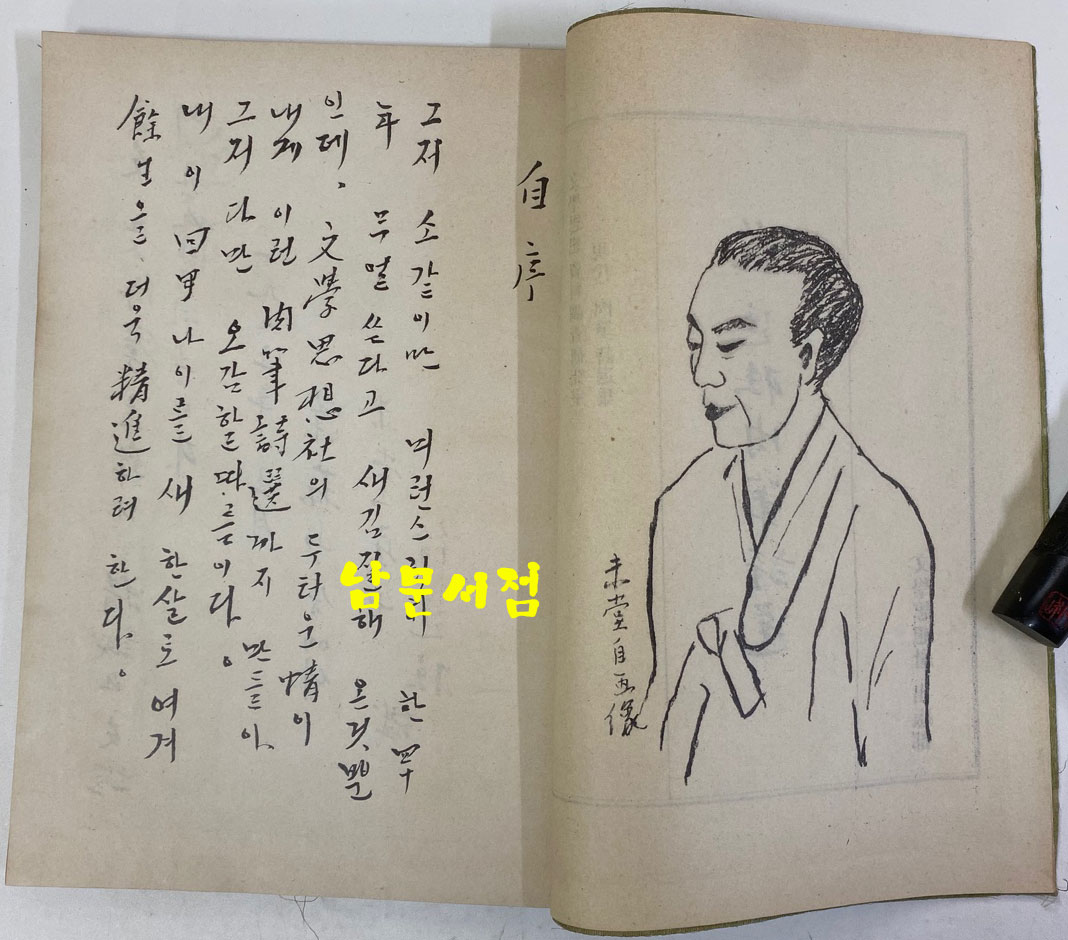 未堂自画像
自序
그저 소같이만 한 四十
年 무얼 쓰다고 새김질해 온것뿐
인데、文學思想社의 두터운 情이
내게 이런 肉筆詩選까지 만드니,
그저 다만 오감할 따름이다。
내 이 回甲 나이를 새 한살로 여겨
餘生을、더욱 精進하려 한다。
남문서점